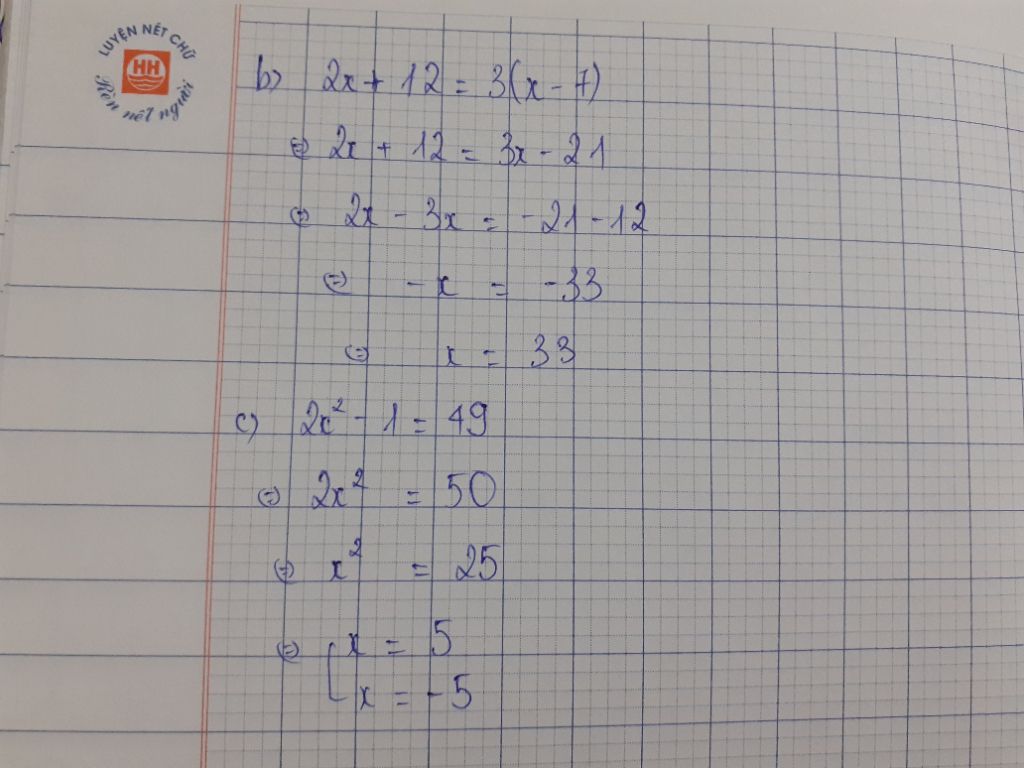 LUYỆN NÉT CHỮ
HH
Rèn nết người
b) 2x + 12 = 3(x - 7)
⇔ 2x + 12 = 3x - 21
⇔ 2x - 3x = -21 - 12
⇔ -x = -33
⇔ x = 33
c) 2x² - 1 = 49
⇔ 2x² = 50
⇔ x² = 25
⇔ [ x = 5
x = -5